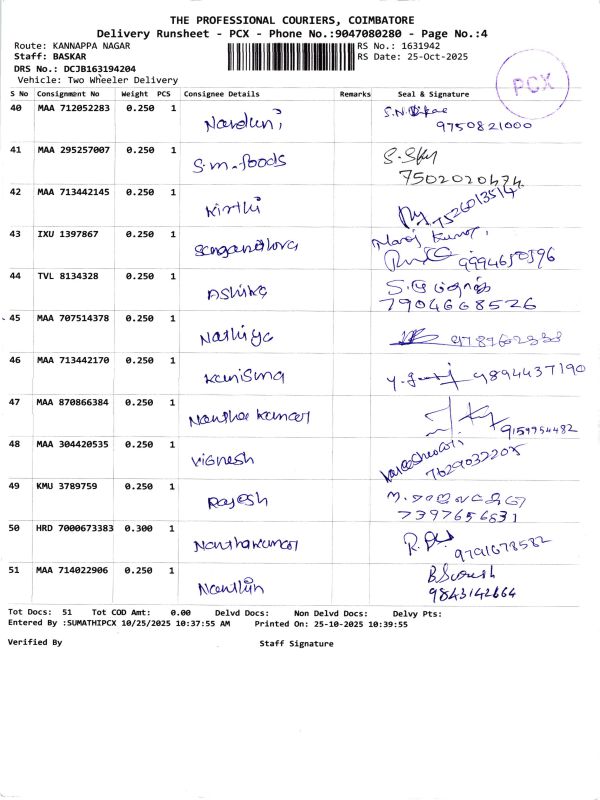 THE PROFESSIONAL COURIERS, COIMBATORE
Delivery Runsheet - PCX - Phone No.:9047080280 - Page No.:4
Route: KANNAPPA NAGAR RS No.: 1631942
Staff: BASKAR RS Date: 25-Oct-2025
DRS No.: DCJB163194204
Vehicle: Two Wheeler Delivery
PCX
S No Consignment No Weight PCS Consignee Details Remarks Seal & Signature
40 MAA 712052283 0.250 1 S.N
9750821000
41 MAA 295257007 0.250 1 S.m.foods S.Sky
7502020474
42 MAA 713442145 0.250 1 Kirthi
43 IXU 1397867 0.250 1 Manoj Kumar,
9994650596
44 TVL 8134328 0.250 1 Ashika
7904668526
45 MAA 707514378 0.250 1 Nathiya
46 MAA 713442170 0.250 1 Kanisma 9894437190
47 MAA 870866384 0.250 1 Nantha kumar
9159754482
48 MAA 304420535 0.250 1 Vignesh
7629032205
49 KMU 3789759 0.250 1 Rajesh
7397656831
50 HRD 7000673383 0.300 1 Nanthakumar
9791678582
51 MAA 714022906 0.250 1
9843142664
Tot Docs: 51 Tot COD Amt: 0.00 Delvd Docs: Non Delvd Docs: Delvy Pts:
Entered By :SUMATHIPCX 10/25/2025 10:37:55 AM Printed On: 25-10-2025 10:39:55
Verified By Staff Signature